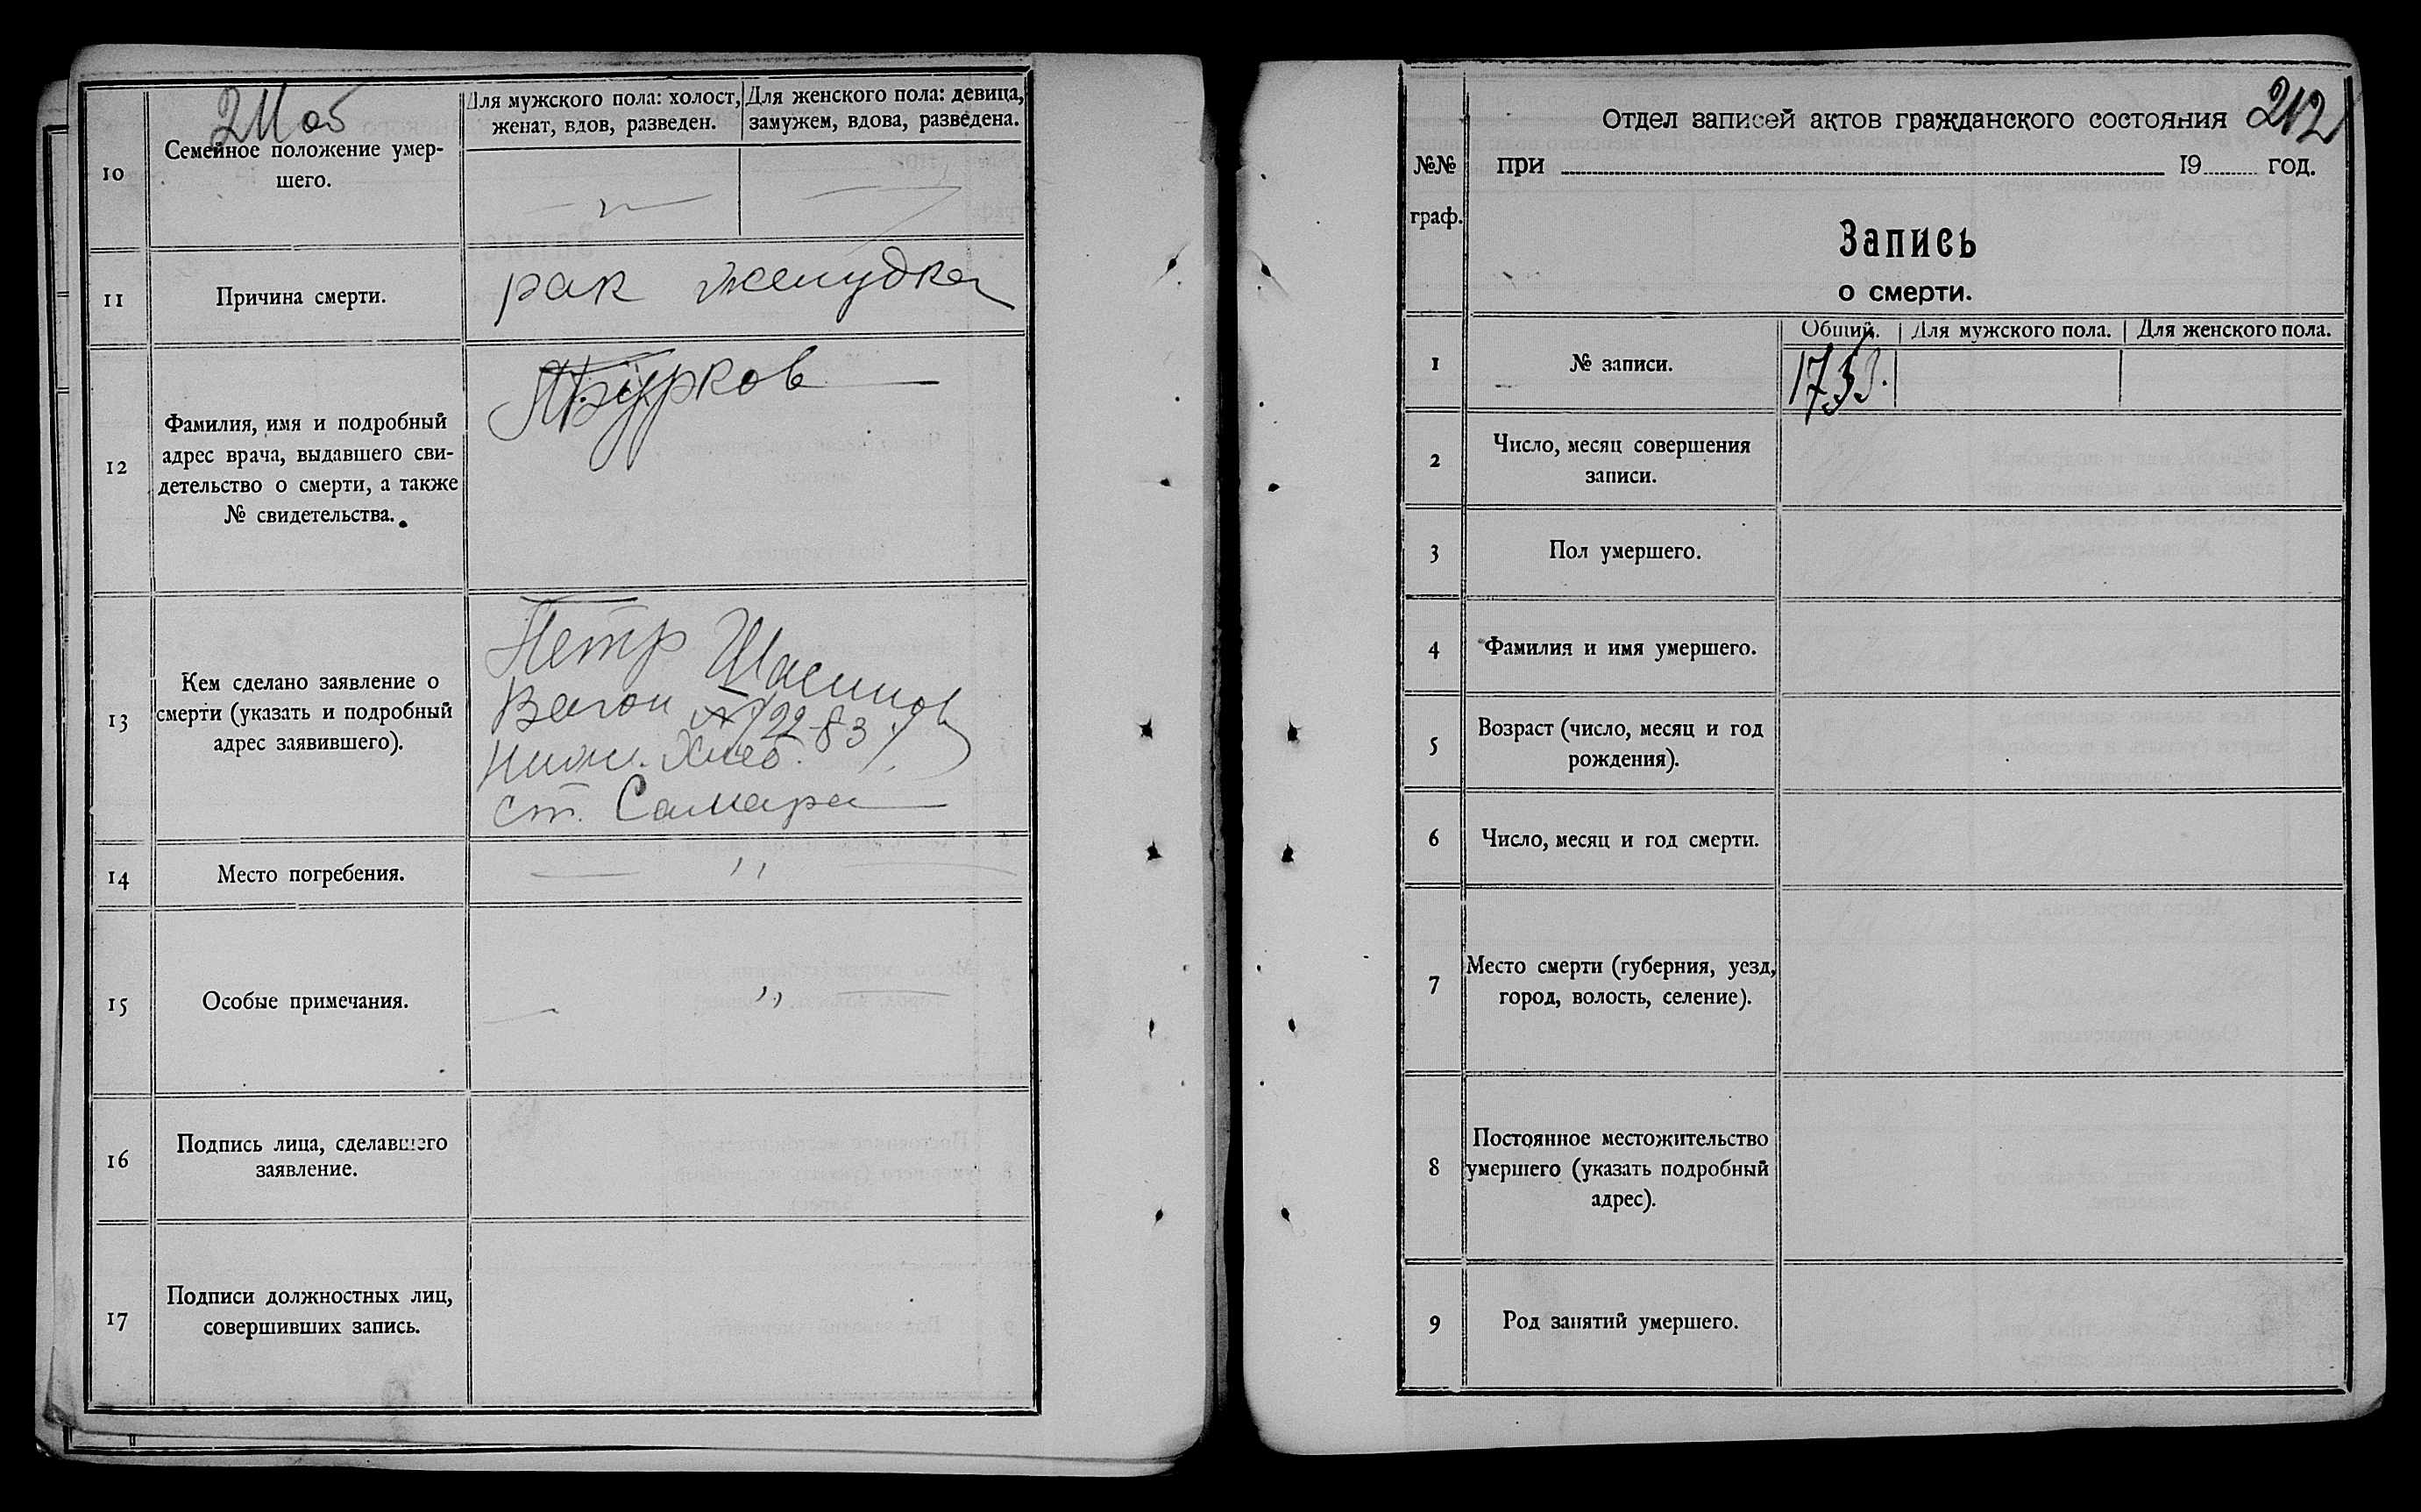 211 об
10
Семейное положение умер-
шего.
Для мужского пола: холост,
женат, вдов, разведен.
Для женского пола: девица,
замужем, вдова, разведена.
11
Причина смерти.
рак желудка
12
Фамилия, имя и подробный
адрес врача, выдавшего сви-
детельство о смерти, а также
№ свидетельства.
Бурков
13
Кем сделано заявление о
смерти (указать и подробный
адрес заявившего).
Петр
Вагон №
ст. Самара
14
Место погребения.
"
15
Особые примечания.
"
16
Подпись лица, сделавшего
заявление.
17
Подписи должностных лиц,
совершивших запись.
212
№№
граф.
Отдел записей актов гражданского состояния
при 19 год.
Запись
о смерти.
1
№ записи.
Общий. Для мужского пола. Для женского пола.
2
Число, месяц совершения
записи.
3
Пол умершего.
4
Фамилия и имя умершего.
5
Возраст (число, месяц и год
рождения).
6
Число, месяц и год смерти.
7
Место смерти (губерния, уезд,
город, волость, селение).
8
Постоянное местожительство
умершего (указать подробный
адрес).
9
Род занятий умершего.